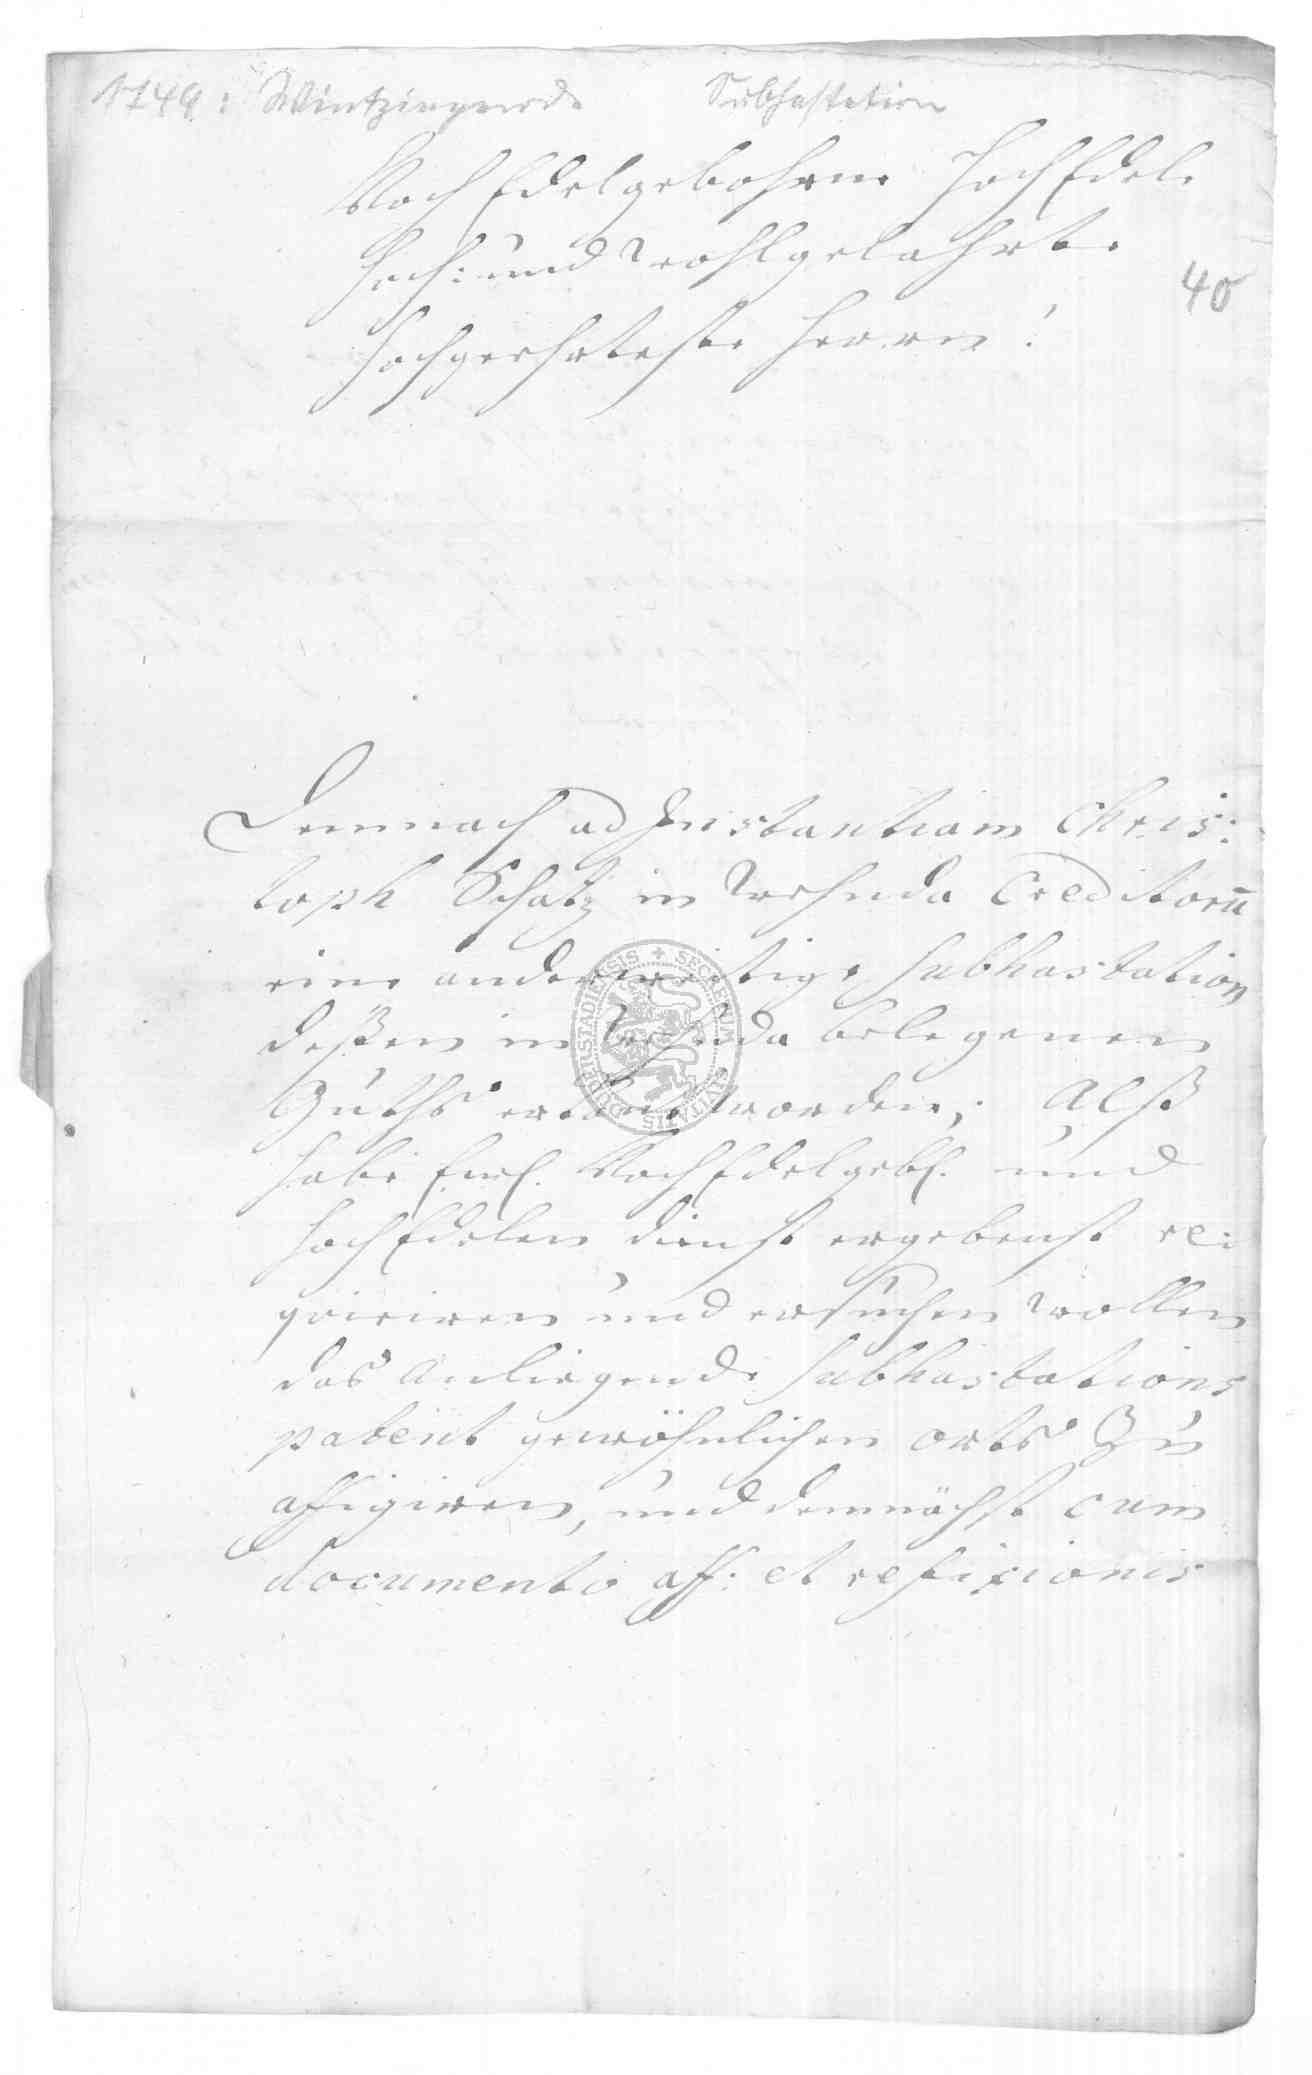 1749: Wintzingerode Subhastation
HochEdelgebohrne HochEdele
Hoch: und Wohlgelahrte
40
Hochgeehrteste Herren!
Demnach ad Instantiam Chris:
toph Schatz in Wehnda Creditorū
eine anderweitige subhastation
deßen in Wehnda belegenen
Guths erkant worden; Alß
habe Ewl. HochEdelgebl. und
HochEdelen dienst ergebenst re:
quiriren und ersuchen wollen
das anliegende subhastations
patent gewöhnlichen orts Zu
affigiren, und demnächst cum
documento aff: et refixionis
SECRETUM CIVITATIS DUDERSTADIENSIS